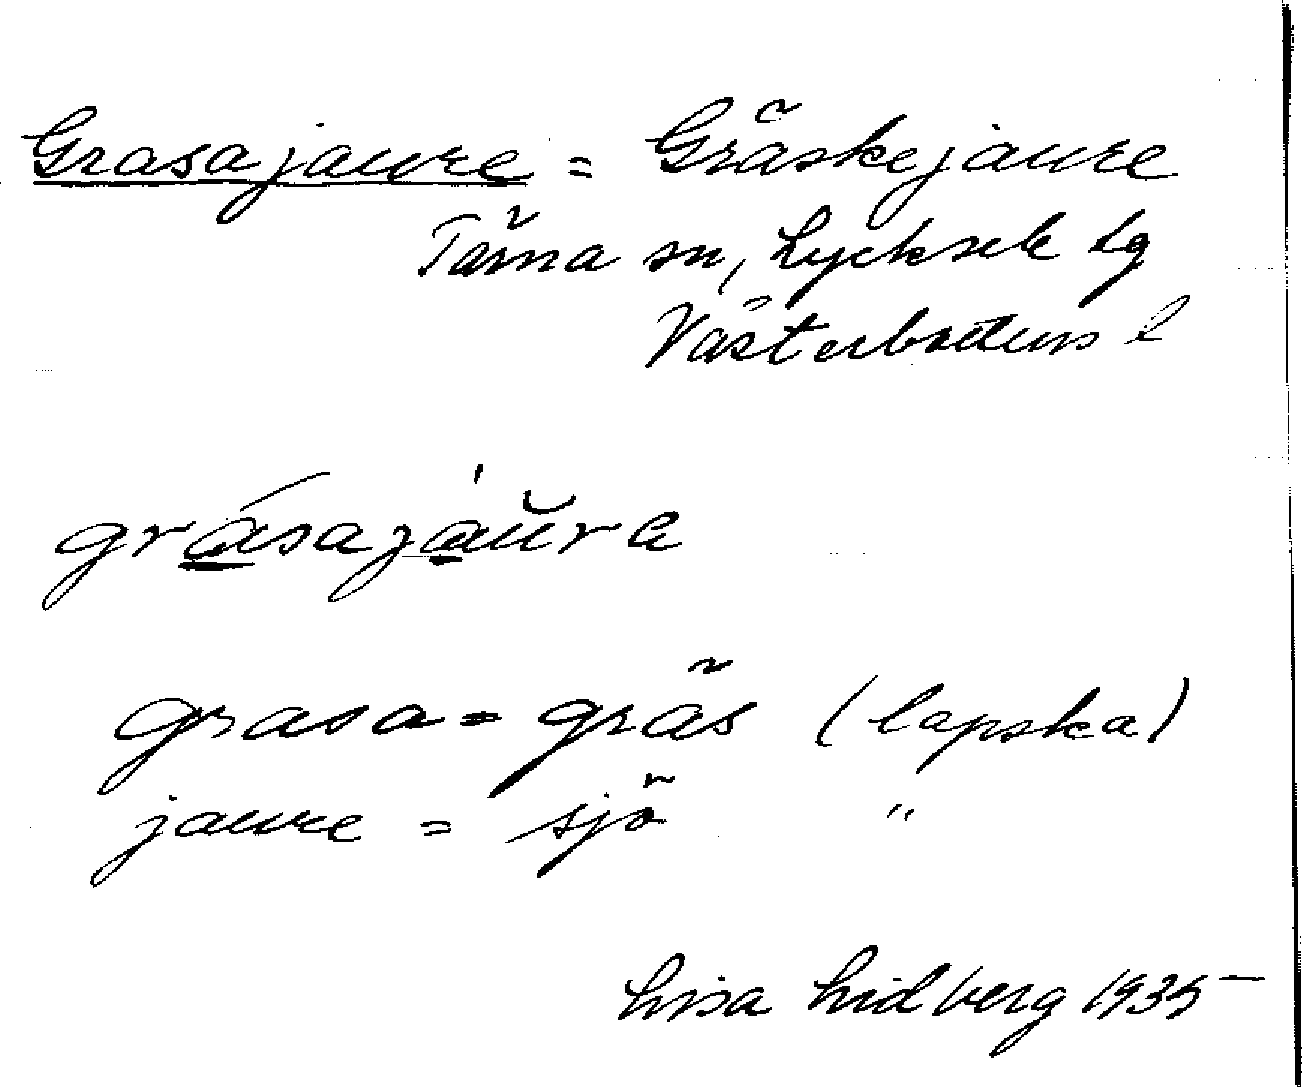 Grasajaure = Gräskejaure
Tärna sn, Lycksele lg
Västerbottens l
grásajáŭra
grasa = gräs (lapska)
jaure = sjö "
Lisa Lidberg 1935